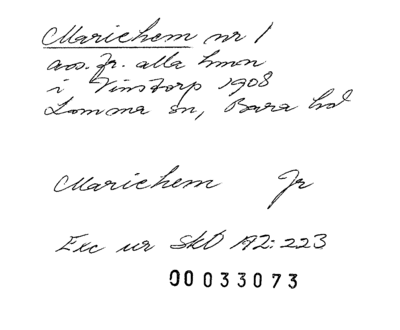 Mariehem nr 1
avs. fr. alla hmn
i Vinstorp 1908
Lomma sn, Bara hd
Mariehem Jr
Exc ur SkO A2:223
00033073